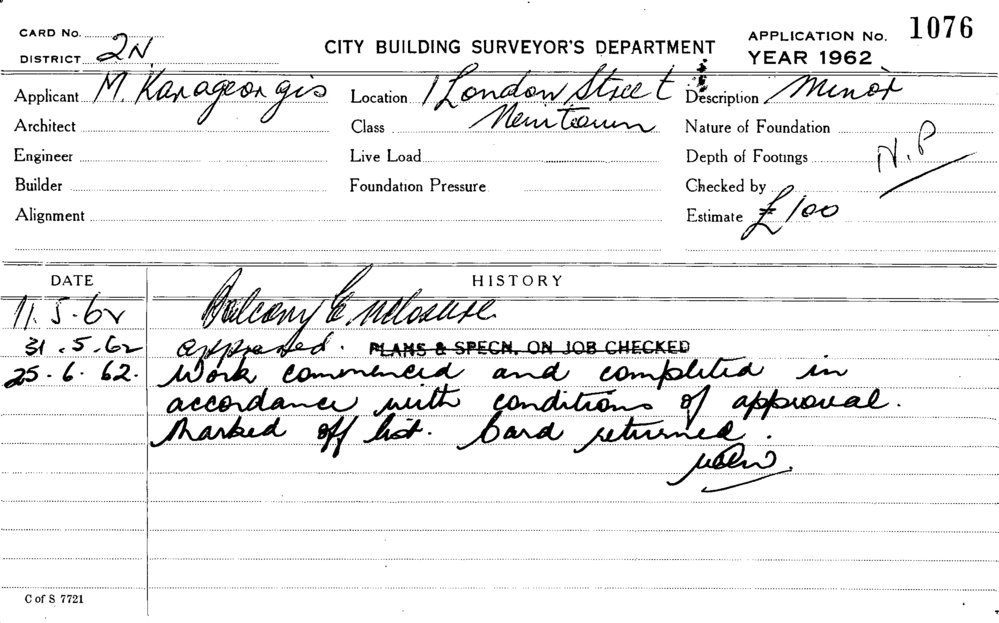 CARD No.
DISTRICT 2N.
CITY BUILDING SURVEYOR'S DEPARTMENT
APPLICATION No. 1076
YEAR 1962
Applicant M. Karageorgis Location 1 London Street Description Minor
Architect Class Newtown Nature of Foundation
Engineer Live Load Depth of Footings N.P
Builder Foundation Pressure Checked by
Alignment Estimate £100
DATE HISTORY
11.5.62 Balcony Enclosure
31.5.62 approved. PLANS & SPECN. ON JOB CHECKED
25.6.62. Work commenced and completed in
accordance with conditions of approval.
Marked off list. Card returned.
C of S 7721